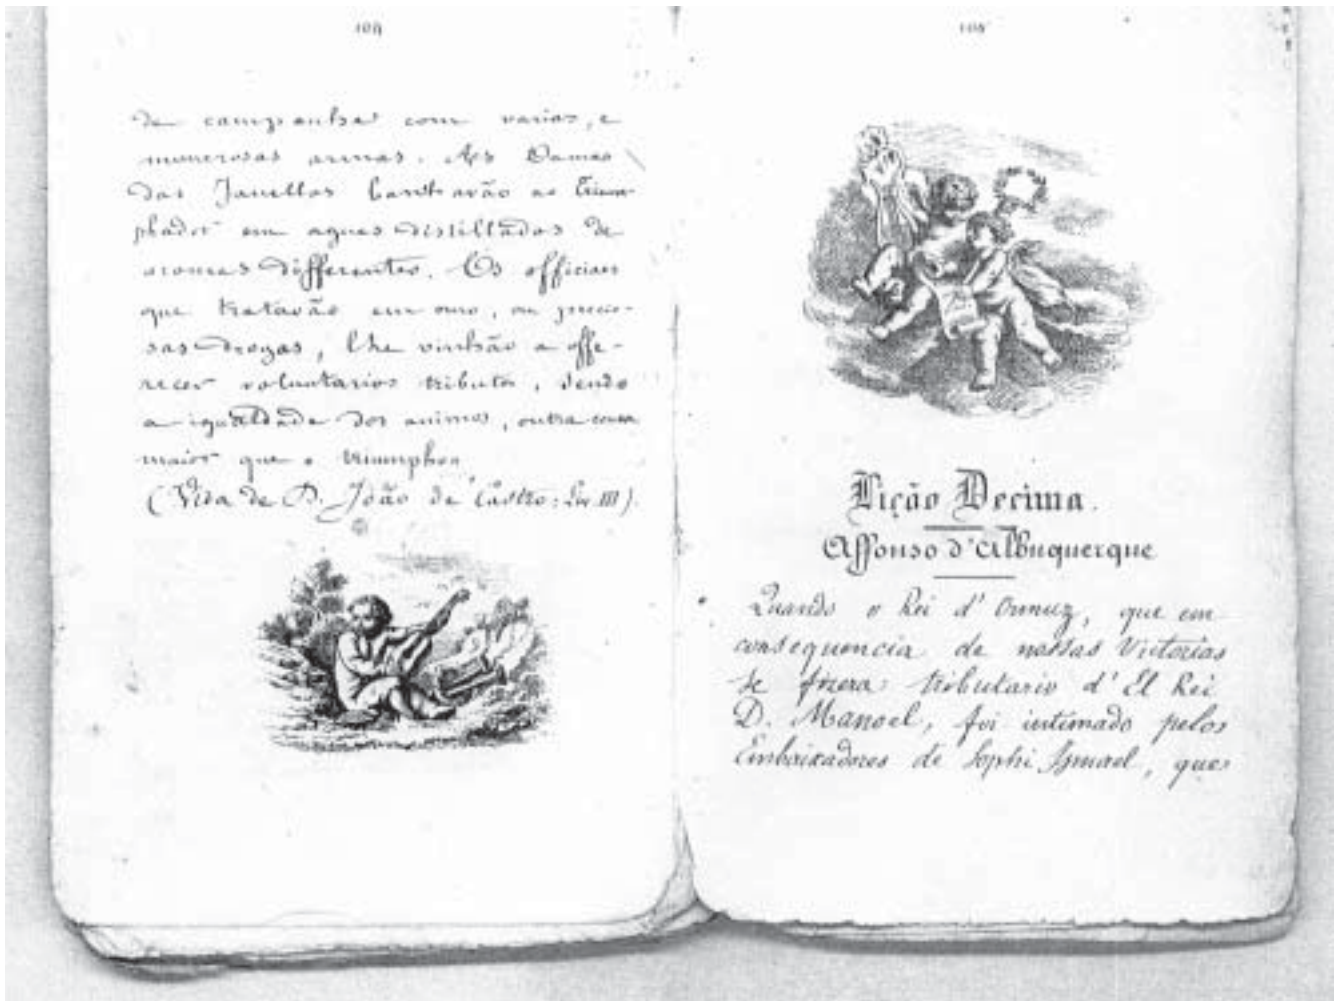 104
de campanha com varios, e
monerosas armas. As Damas
das Janellas banharão ao Trium-
phador em aguas distilladas de
aromas differentes. Os officiaes
que tratavão em ouro, ou precio-
sas drogas, lhe vinhão a offe-
recer voluntarios tributos, sendo
a igualdade dos animos, outra cousa
maior que o triumpho.
(Vida de D. João de Castro: Liv. III).
105
Lição Decima.
Affonso d'Albuquerque
Quando o Rei d'Ormuz, que em
consequencia de nossas Victorias
se fizera tributario d'El Rei
D. Manoel, foi intimado pelos
Embaixadores de Sophi Ismael, que